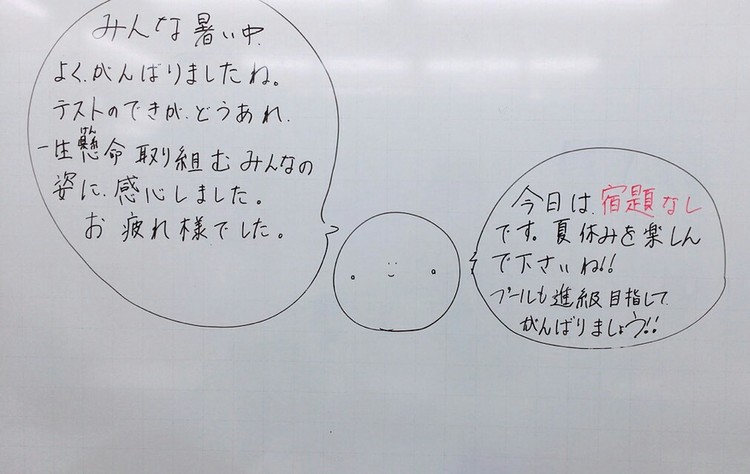 みんな暑い中、
よく、がんばりましたね。
テストのできが、どうあれ、
一生懸命取り組むみんなの
けん
姿に、感心しました。
お疲れ様でした。
今日は、宿題なし
です。夏休みを楽しん
で下さいね!!
プールも進級目指して
がんばりましょう!!